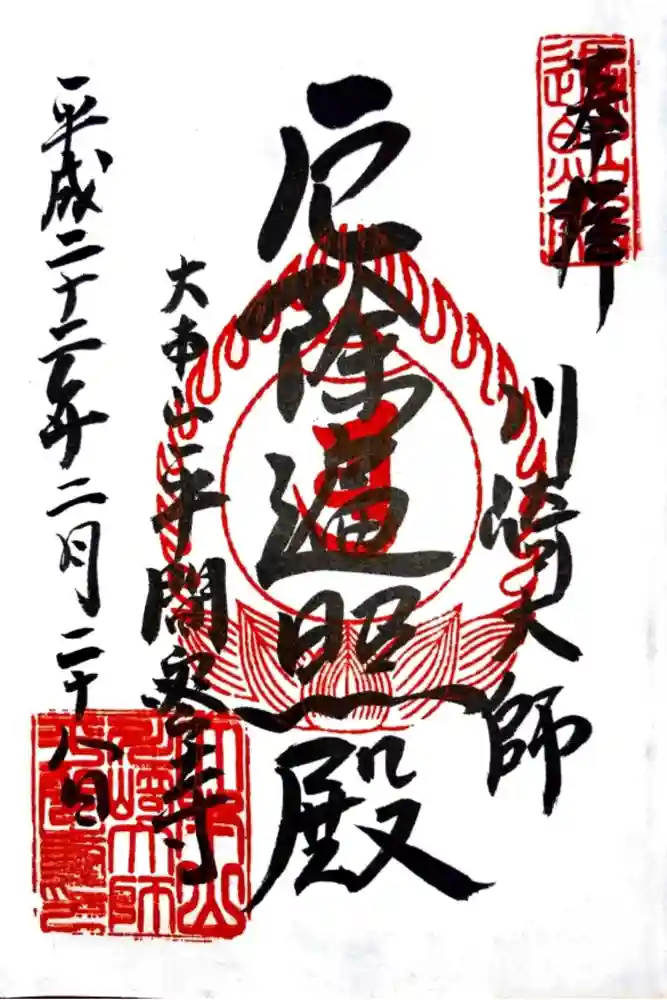 奉拝
川崎大師
厄除遍照殿
大本山平間寺
平成二十二年二月二十八日
川崎大師